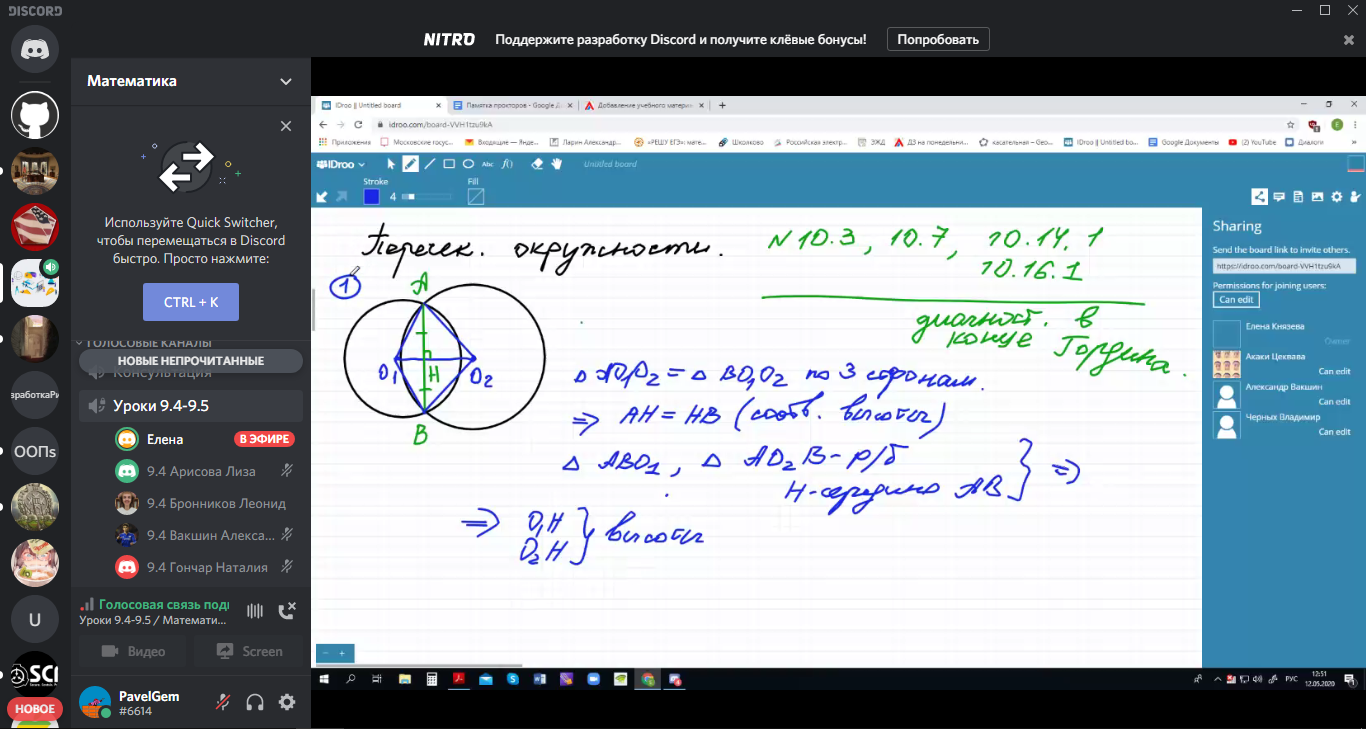 DISCORD
NITRO Поддержите разработку Discord и получите клёвые бонусы! Попробовать
Математика
Используйте Quick Switcher,
чтобы перемещаться в Discord
быстро. Просто нажмите:
CTRL + K
ГОЛОСОВЫЕ КАНАЛЫ
НОВЫЕ НЕПРОЧИТАННЫЕ
Консультация
Уроки 9.4-9.5
Елена В ЭФИРЕ
9.4 Арисова Лиза
9.4 Бронников Леонид
9.4 Вакшин Алекса...
9.4 Гончар Наталия
Голосовая связь подк
Уроки 9.4-9.5 / Математи...
Видео Screen
PavelGem
#6614
ООПs
U
SCI
НОВОЕ
IDroo || Untitled board
Памятка прокторов - Google Д
Добавление учебного матери
idroo.com/board-VVH1tzu9kA
Приложения Московские госус... Входящие — Янде... Ларин Александр... «РЕШУ ЕГЭ»: мате... Школково Российская электр... ЭЖД ДЗ на понедельни... касательная – Geo... IDroo || Untitled bo... Google Документы (2) YouTube Диалоги
IDroo Abc f() Untitled board
Stroke Fill
4
Пересек. окружности.
N 10.3, 10.7, 10.14.1
10.16.1
диагност. в
конце Гордина.
1
A
O1 H O2
B
△ AO1O2 = △ BO1O2 по 3 сторонам.
⇒ AH = HB (соотв. высоты)
△ ABO1, △ AO2B - р/б
H-середина AB } ⇒
⇒ O1H
O2H } высоты
Sharing
Send the board link to invite others.
https://idroo.com/board-VVH1tzu9kA
Permissions for joining users:
Can edit
Елена Князева
Owner
Акаки Цехвава
Can edit
Александр Вакшин
Can edit
Черных Владимир
Can edit
РУС
12:51
12.05.2020